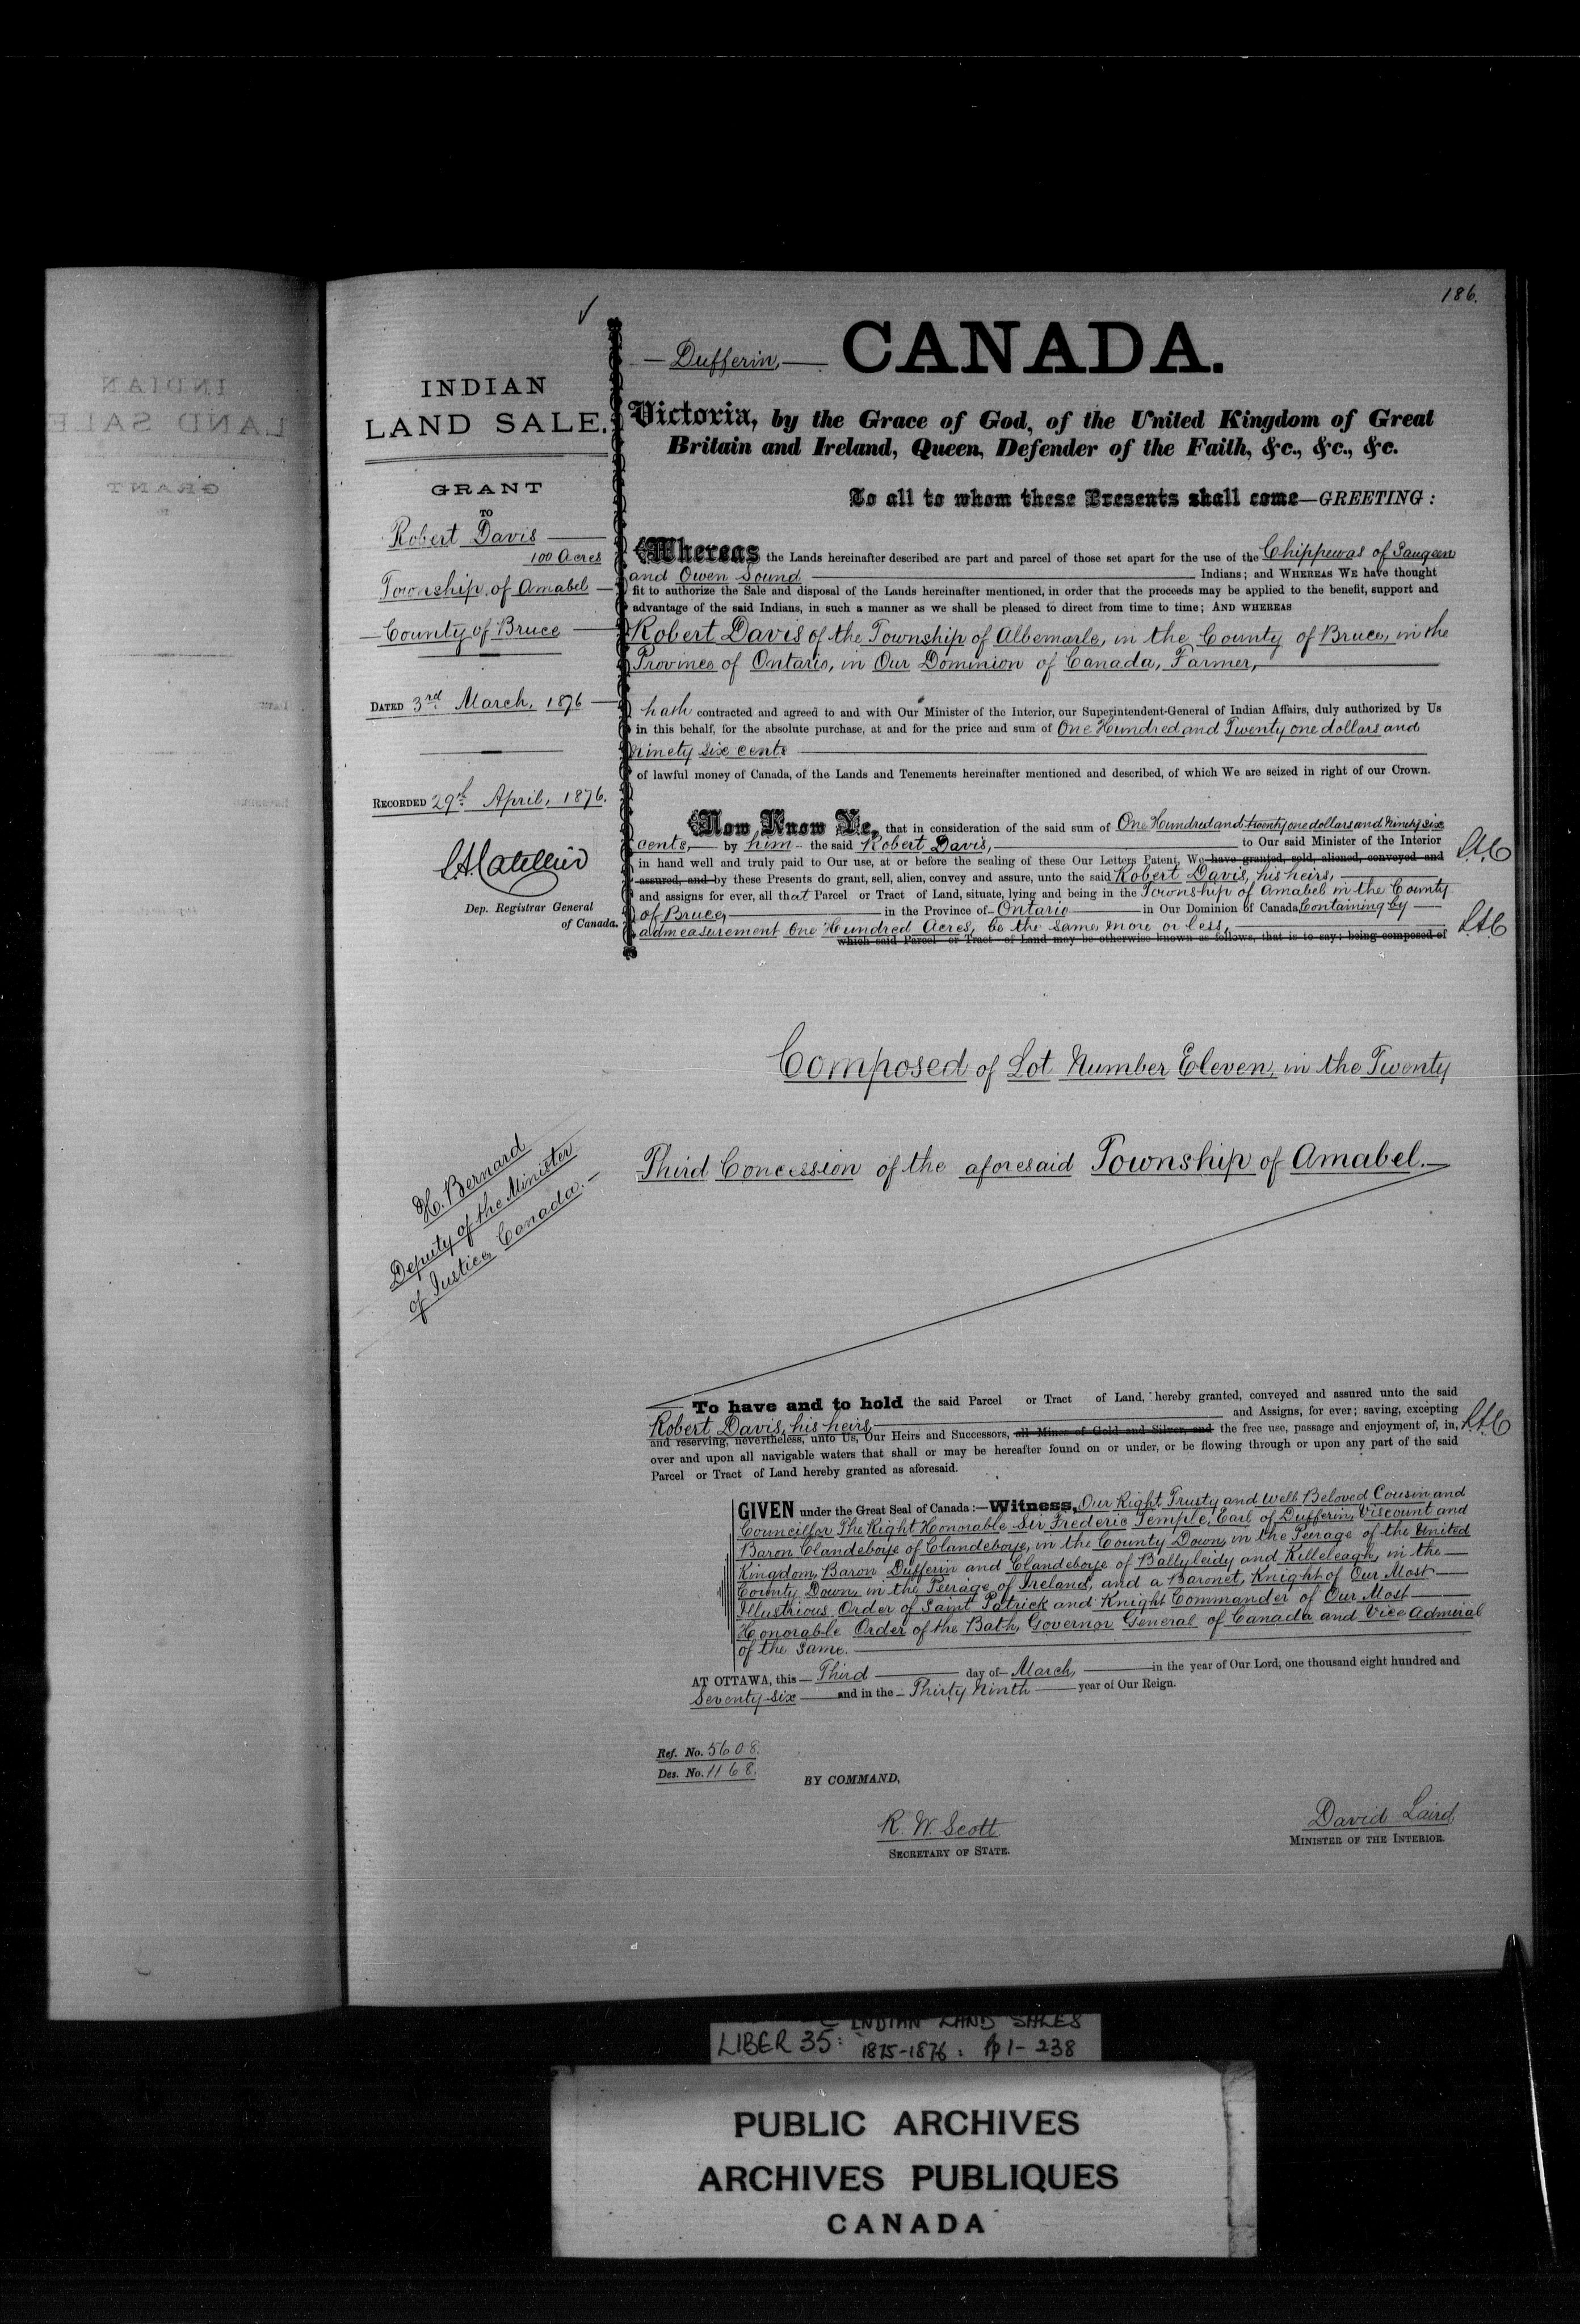 186.
INDIAN
LAND SALE.
GRANT
TO
Robert Davis
100 Acres
Township of Amabel
County of Bruce
DATED 3rd March, 1876
RECORDED 29th April, 1876.
Dep. Registrar General
of Canada.
H. Bernard
Deputy of the Minister
of Justice, Canada.
Dufferin, CANADA.
Victoria, by the Grace of God, of the United Kingdom of Great
Britain and Ireland, Queen, Defender of the Faith, &c., &c., &c.
To all to whom these Presents shall come—GREETING:
Whereas the Lands hereinafter described are part and parcel of those set apart for the use of the Chippewas of Saugeen
and Owen Sound Indians; and WHEREAS WE have thought
fit to authorize the Sale and disposal of the Lands hereinafter mentioned, in order that the proceeds may be applied to the benefit, support and
advantage of the said Indians, in such a manner as we shall be pleased to direct from time to time; AND WHEREAS
Robert Davis of the Township of Albemarle, in the County of Bruce, in the
Province of Ontario, in Our Dominion of Canada, Farmer,
hath contracted and agreed to and with Our Minister of the Interior, our Superintendent-General of Indian Affairs, duly authorized by Us
in this behalf, for the absolute purchase, at and for the price and sum of One Hundred and Twenty one dollars and
ninety six cents
of lawful money of Canada, of the Lands and Tenements hereinafter mentioned and described, of which We are seized in right of our Crown.
Now Know Ye, that in consideration of the said sum of One Hundred and twenty one dollars and Ninety six
cents, by him the said Robert Davis, to Our said Minister of the Interior
in hand well and truly paid to Our use, at or before the sealing of these Our Letters Patent, We have granted, sold, aliened, conveyed and
assured, and by these Presents do grant, sell, alien, convey and assure, unto the said Robert Davis, his heirs,
and assigns for ever, all that Parcel or Tract of Land, situate, lying and being in the Township of Amabel in the County
of Bruce, in the Province of Ontario in Our Dominion of Canada, Containing by
admeasurement One Hundred Acres, be the same more or less,
which said Parcel or Tract of Land may be otherwise known as follows, that is to say: being composed of
Composed of Lot Number Eleven, in the Twenty
Third Concession of the aforesaid Township of Amabel.
To have and to hold the said Parcel or Tract of Land, hereby granted, conveyed and assured unto the said
Robert Davis, his heirs, and Assigns, for ever; saving, excepting
and reserving, nevertheless, unto Us, Our Heirs and Successors, all Mines of Gold and Silver, and the free use, passage and enjoyment of, in,
over and upon all navigable waters that shall or may be hereafter found on or under, or be flowing through or upon any part of the said
Parcel or Tract of Land hereby granted as aforesaid.
GIVEN under the Great Seal of Canada:—Witness, Our Right Trusty and Well Beloved Cousin and
Councillor The Right Honorable Sir Frederic Temple, Earl of Dufferin, Viscount and
Baron Clandeboye of Clandeboye, in the County Down, in the Peerage of the United
Kingdom, Baron Dufferin and Clandeboye of Ballyleidy and Killeleagh, in the
County Down, in the Peerage of Ireland, and a Baronet, Knight of Our Most
Illustrious Order of Saint Patrick and Knight Commander of Our Most
Honorable Order of the Bath, Governor General of Canada and Vice Admiral
of the Same.
AT OTTAWA, this Third day of March, in the year of Our Lord, one thousand eight hundred and
Seventy-six and in the Thirty Ninth year of Our Reign.
Ref. No. 5608.
Des. No. 1168.
BY COMMAND,
R. W. Scott
SECRETARY OF STATE.
David Laird
MINISTER OF THE INTERIOR.
INDIAN LAND SALES
LIBER 35: 1875-1876: pp 1-238
PUBLIC ARCHIVES
ARCHIVES PUBLIQUES
CANADA